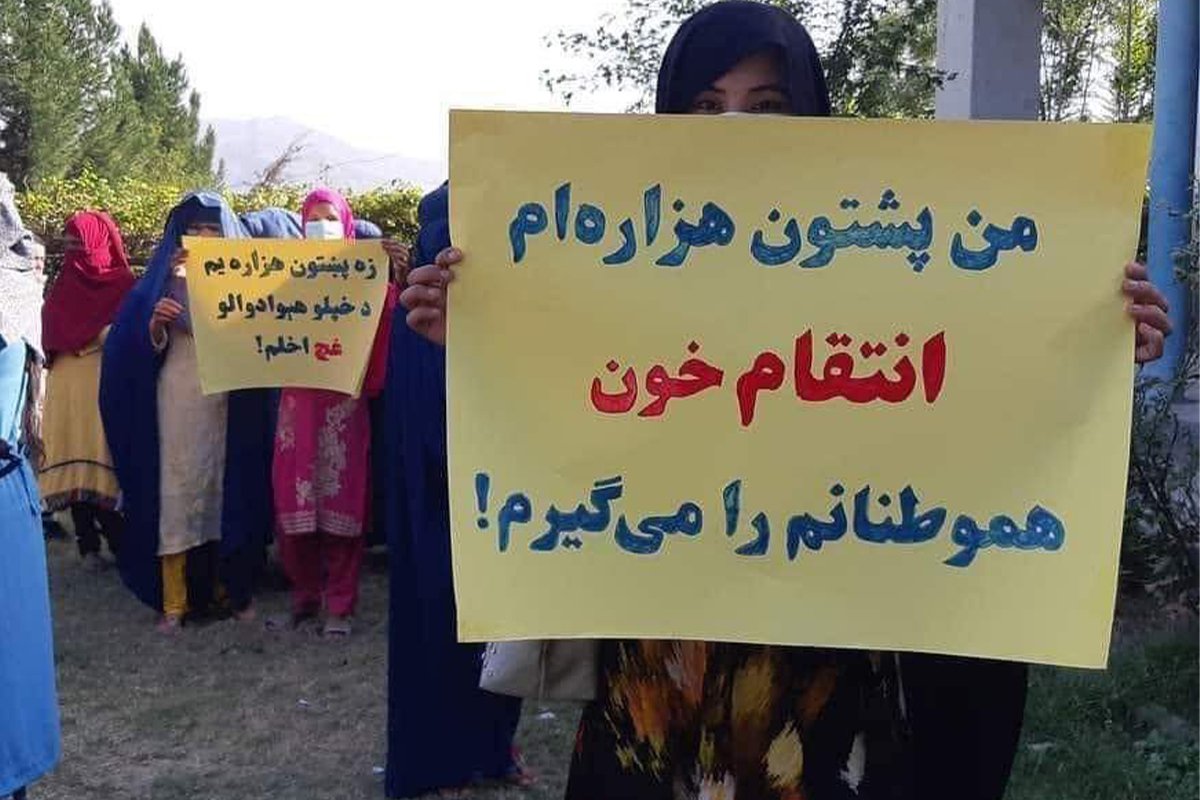 من پشتون هزاره‌ام
انتقام خون
هموطنانم را می‌گیرم!
زه پښتون هزاره یم
د خپلو هېوادوالو
غچ اخلم!